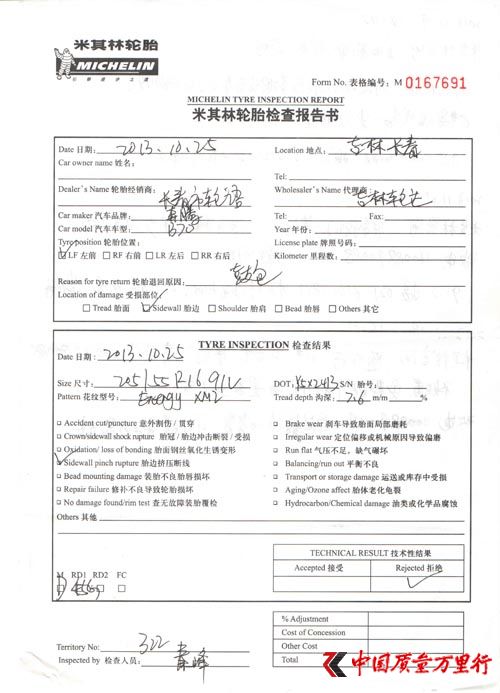 米其林轮胎
MICHELIN
Form No. 表格编号: M 0167691
MICHELIN TYRE INSPECTION REPORT
米其林轮胎检查报告书
Date 日期: 2013.10.25
Location 地点: 吉林长春
Car owner name 姓名:
Tel:
Dealer's Name 轮胎经销商: 长春市车语
Wholesaler's Name 代理商: 吉林
Car maker 汽车品牌: 奔腾
Tel: Fax:
Car model 汽车车型: B70
Year 年份:
Tyre position 轮胎位置:
License plate 牌照号码:
LF 左前 □ RF 右前 □ LR 左后 □ RR 右后
Kilometer 里程数:
Reason for tyre return 轮胎退回原因: 鼓包
Location of damage 受损部位
□ Tread 胎面 ☑ Sidewall 胎边 □ Shoulder 胎肩 □ Bead 胎唇 □ Others 其它
TYRE INSPECTION 检查结果
Date 日期: 2013.10.25
Size 尺寸: 205/55R16 91V
DOT: X5X2413 S/N 胎号:
Pattern 花纹型号: Energy XM2
Tread depth 沟深: 7.6 m/m %
□ Accident cut/puncture 意外割伤 / 贯穿
□ Brake wear 刹车导致胎面局部磨耗
□ Crown/sidewall shock rupture 胎冠 / 胎边冲击断裂 / 受损
□ Irregular wear 定位偏移或机械原因导致偏磨
□ Oxidation/ loss of bonding 胎面钢丝氧化生锈变形
□ Run flat 气压不足，缺气碾坏
☑ Sidewall pinch rupture 胎边挤压断线
□ Balancing/run out 平衡不良
□ Bead mounting damage 装胎不良胎唇损坏
□ Transport or storage damage 运送或库存中受损
□ Repair failure 修补不良导致轮胎损坏
□ Aging/Ozone affect 胎体老化龟裂
□ No damage found/rim test 查无故障装胎覆检
□ Hydrocarbon/Chemical damage 油类或化学品腐蚀
Others 其他
TECHNICAL RESULT 技术性结果
Accepted 接受 Rejected 拒绝
✓
M RD1 RD2 FC
% Adjustment
Cost of Concession
Other Cost
Total
Territory No: 322
Inspected by 检查人员:
中国质量万里行